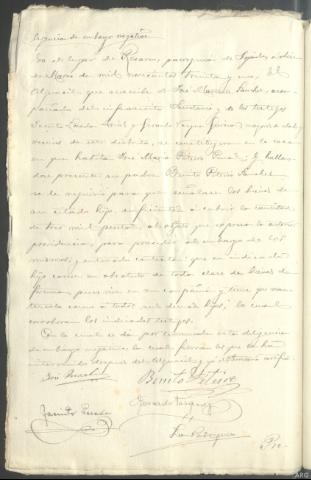 Diligencia de embargo negativo
En el lugar de Rosario, parroquia de
de Marzo de mil novecientos treinta y uno. El
Alguacil, que suscribe de José Sanchez, acom-
pañado del infrascrito Secretario y de los testigos
Jacinto Losada y Gerardo Vázquez mayores de edad y
vecinos de este distrito, se constituyeron en la casa
en que habita José María Piñeiro y hallan-
dose presente su padre Benito Sanchez
se le requirió para que señalase los bienes de
su citado hijo, suficientes a cubrir la cantidad
de tres mil pesetas, a objeto que expresa la anterior
providencia, para proceder al embargo de los
mismos; y enterado contestó: que su indicado
hijo carece en absoluto de toda clase de bienes de
fortuna, pues vive en su compañia y tiene que man-
tenerlo como a todos sus demás hijos; lo cual
corroboran los indicados testigos.
Con lo cual se dió por terminada esta diligencia
de embargo negativo, la cual firman los que la han
intervenido despues del Alguacil, y yo Secretario certifico.
José
Benito
Gerardo Vazquez
Jacinto Losada
Pro-
ARG